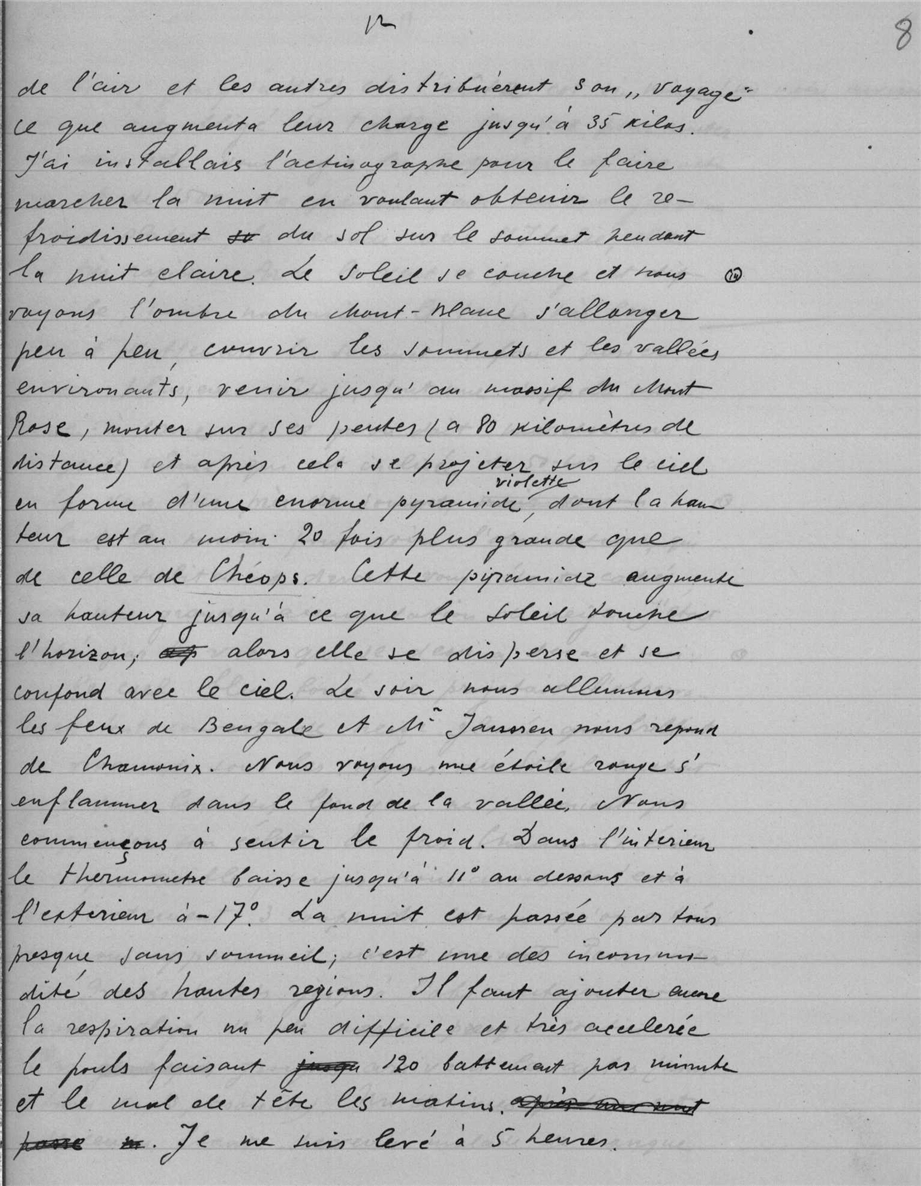 12
8
de l'air et les autres distribuèrent son „voyage"
ce que augmenta leur charge jusqu'à 35 kilos.
J'ai installais l'actinographe pour le faire
marcher la nuit en voulant obtenir le re-
froidissement su du sol sur le sommet pendant
la nuit claire. Le soleil se couche et nous
voyons l'ombre du Mont-Blanc s'allonger
peu à peu, couvrir les sommets et les vallées
environants, venir jusqu'au massif du Mont
Rose, monter sur ses pentes (a 80 kilomètres de
distance) et après cela se projeter sur le ciel
violette
en forme d'une enorme pyramide, dont la hau-
teur est au moin 20 fois plus grande que
de celle de Chéops. Cette pyramide augmente
sa hauteur jusqu'à ce que le soleil touche
l'horizon; alors elle se disperse et se
confond avec le ciel. Le soir nous allumons
les feux de Bengale et Mr Janssen nous repond
de Chamonix. Nous voyons une étoile rouge s'
enflammer dans le fond de la vallée. Nous
commençons à sentir le froid. Dans l'interieur
le thermometre baisse jusqu'à 11° au dessous et à
l'exterieur à -17°. La nuit est passée par tous
presque sans sommeil; c'est une des incommo-
dité des hautes regions. Il faut ajouter encore
la respiration un peu difficile et très accelerée
le pouls faisant jusqu 120 battement par minute
et le mal de tête les matins. après
passe Je me suis levé à 5 heures.